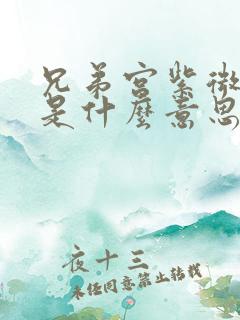 兄弟宫紫微
是什麼意思
夜十三
未经同意禁止转载